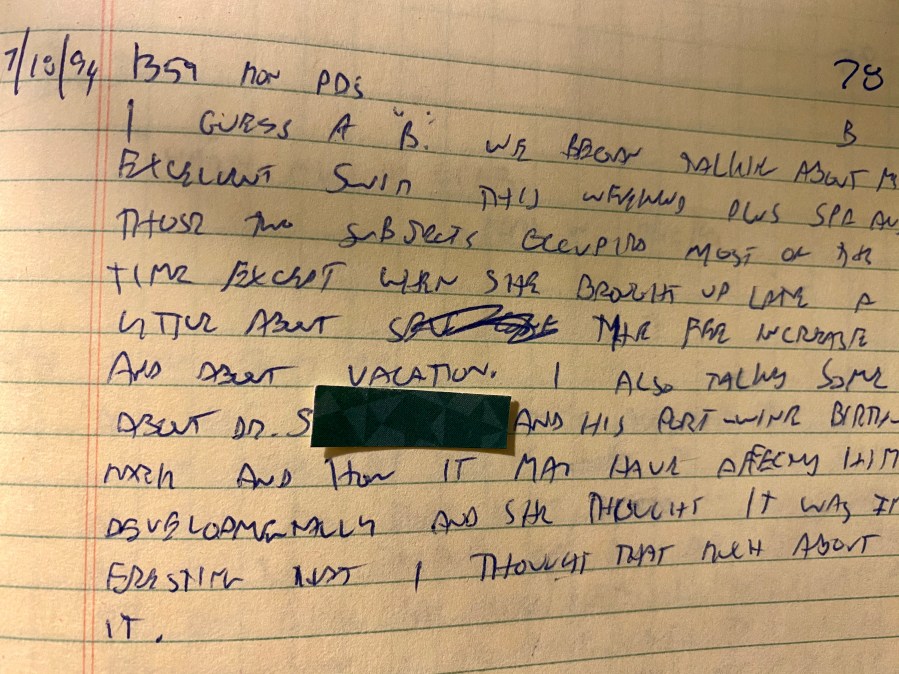 7/18/94 1359 MON PDS 78
I GUESS A "B". WE BEGAN TALKIN ABOUT B
EXCELLENT SWIM THIS WEEKEND PLUS SPR
THOSE TWO SUBJECTS OCCUPIED MOST OF THE
TIME EXCEPT WHEN SHE BROUGHT UP LATE A
LITTLE ABOUT THE FEE INCREASE
AND ABOUT VACATION. I ALSO TALKED SOME
ABOUT DR. S AND HIS PORT-WINE BIRTH-
MARK AND HOW IT MAY HAVE AFFECTED HIM
DEVELOPMENTALLY AND SHE THOUGHT IT WAS INT
ERESTING THAT I THOUGHT THAT MUCH ABOUT
IT.